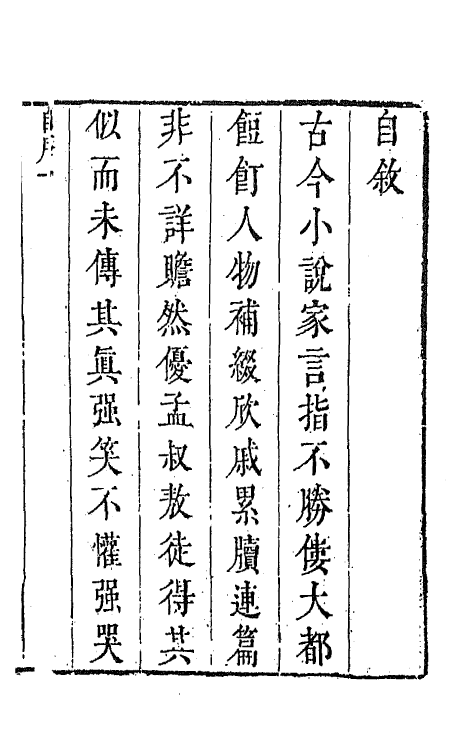 自敘
古今小說家言指不勝僂大都
饾飣人物補綴欣戚累牘連篇
非不詳贍然優孟叔敖徒得其
似而未傳其眞强笑不懽强哭
自序一